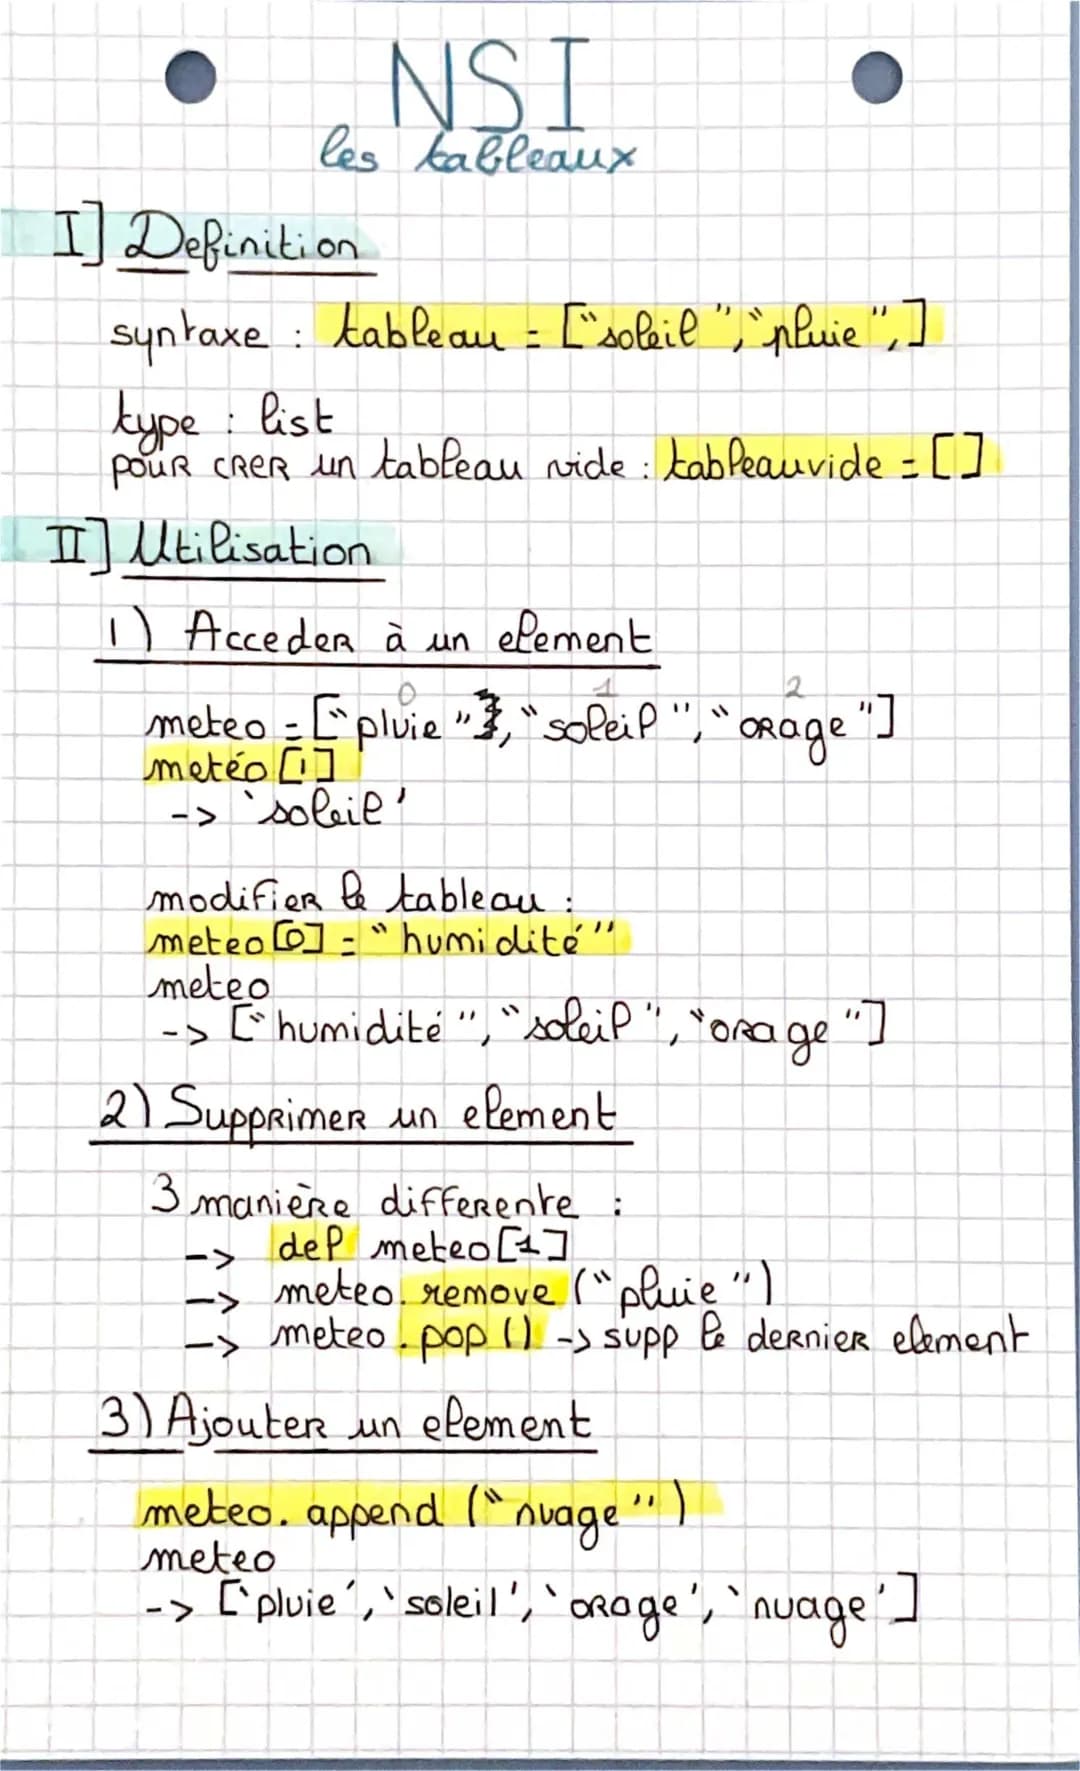 NSI
les tableaux
I] Definition
syntaxe : tableau = ["soleil", "pluie",]
type : list
pour crer un tableau vide : tableauvide = []
II] Utilisation
1) Acceder à un element
0 1 2
meteo = ["pluie", "soleil", "orage"]
metéo [1]
-> 'soleil'
modifier le tableau :
meteo [0] = "humidité"
meteo
-> ["humidité", "soleil", "orage"]
2) Supprimer un element
3 manière differente :
-> del meteo [1]
-> meteo.remove ("pluie")
-> meteo.pop () -> supp le dernier element
3) Ajouter un element
meteo.append ("nuage")
meteo
-> ['pluie', 'soleil', 'orage', 'nuage']